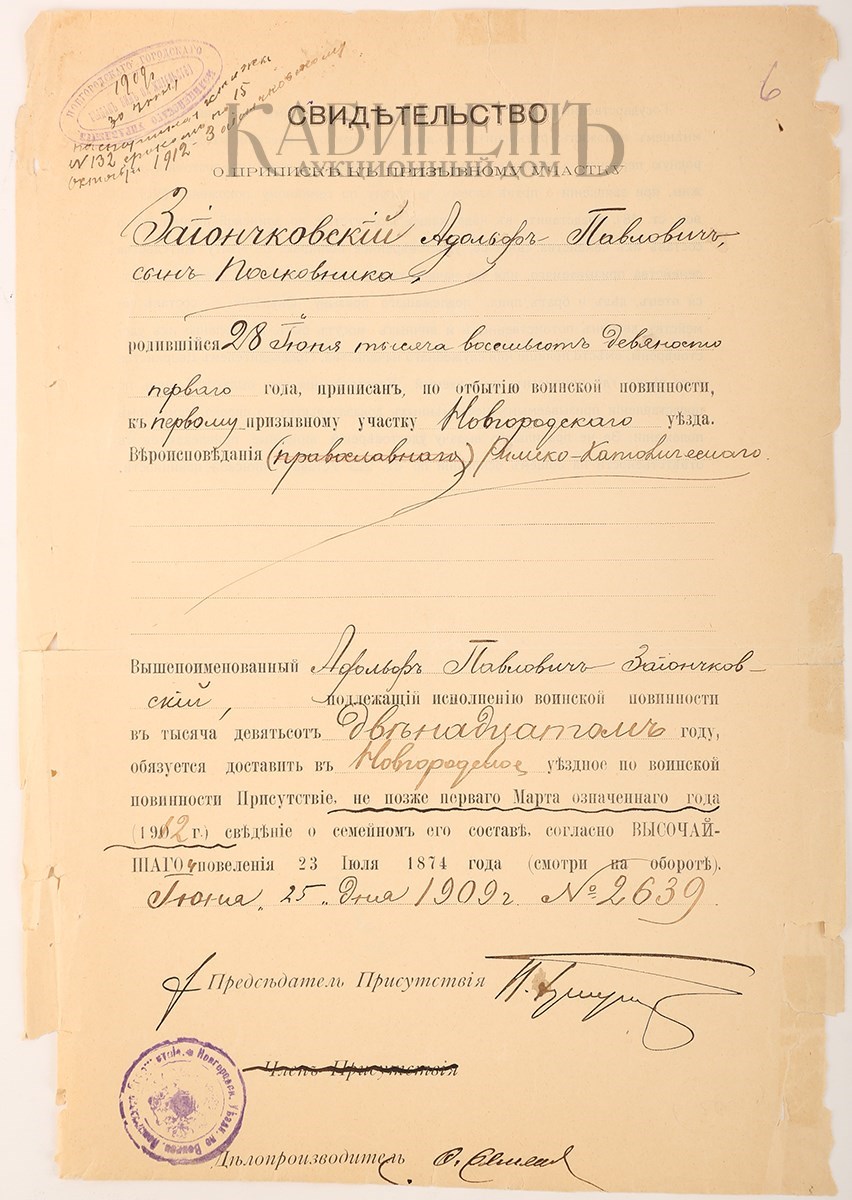 НОВГОРОДСКАГО ГОРОДСКАГО
1909 г.
паспортная книжка
№ 132 срокомъ по 15
октября 1912 Заіончковскому
6
СВИДѢТЕЛЬСТВО
КАБИНЕТЪ
АУКЦИОННЫЙ ДОМ
О ПРИПИСКѢ КЪ ПРИЗЫВНОМУ УЧАСТКУ
Заіончковскій Адольфъ Павловичъ,
сынъ Полковника,
родившійся 28 Іюня тысяча восемьсотъ девяносто
перваго года, приписанъ, по отбытію воинской повинности,
къ первому призывному участку Новгородскаго уѣзда.
Вѣроисповѣданія (православнаго) Римско-Католическаго.
Вышепоименованный Адольфъ Павловичъ Заіончков-
скій, подлежащій исполненію воинской повинности
въ тысяча девятьсотъ двѣнадцатомъ году,
обязуется доставить въ Новгородское уѣздное по воинской
повинности Присутствіе, не позже перваго Марта означеннаго года
(1912 г.) свѣдѣніе о семейномъ его составѣ, согласно ВЫСОЧАЙ-
ШАГО повеленія 23 Іюля 1874 года (смотри на оборотѣ).
Іюня „25„ дня 1909 г. № 2639.
Предсѣдатель Присутствія
Членъ Присутствія
Дѣлопроизводитель